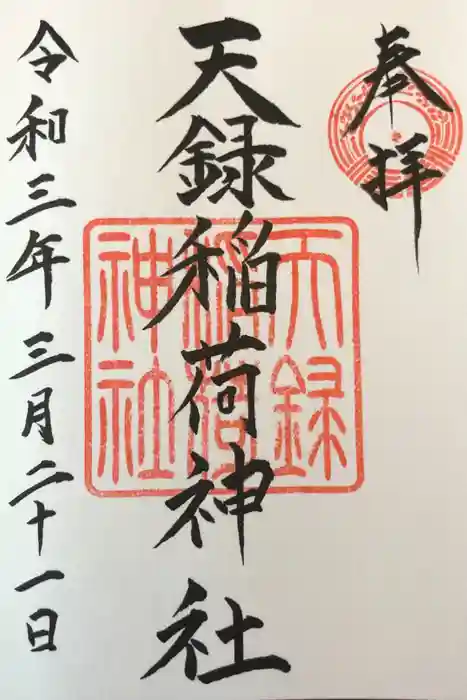 奉拝
天録稲荷神社
天録稲荷神社
令和三年三月二十一日